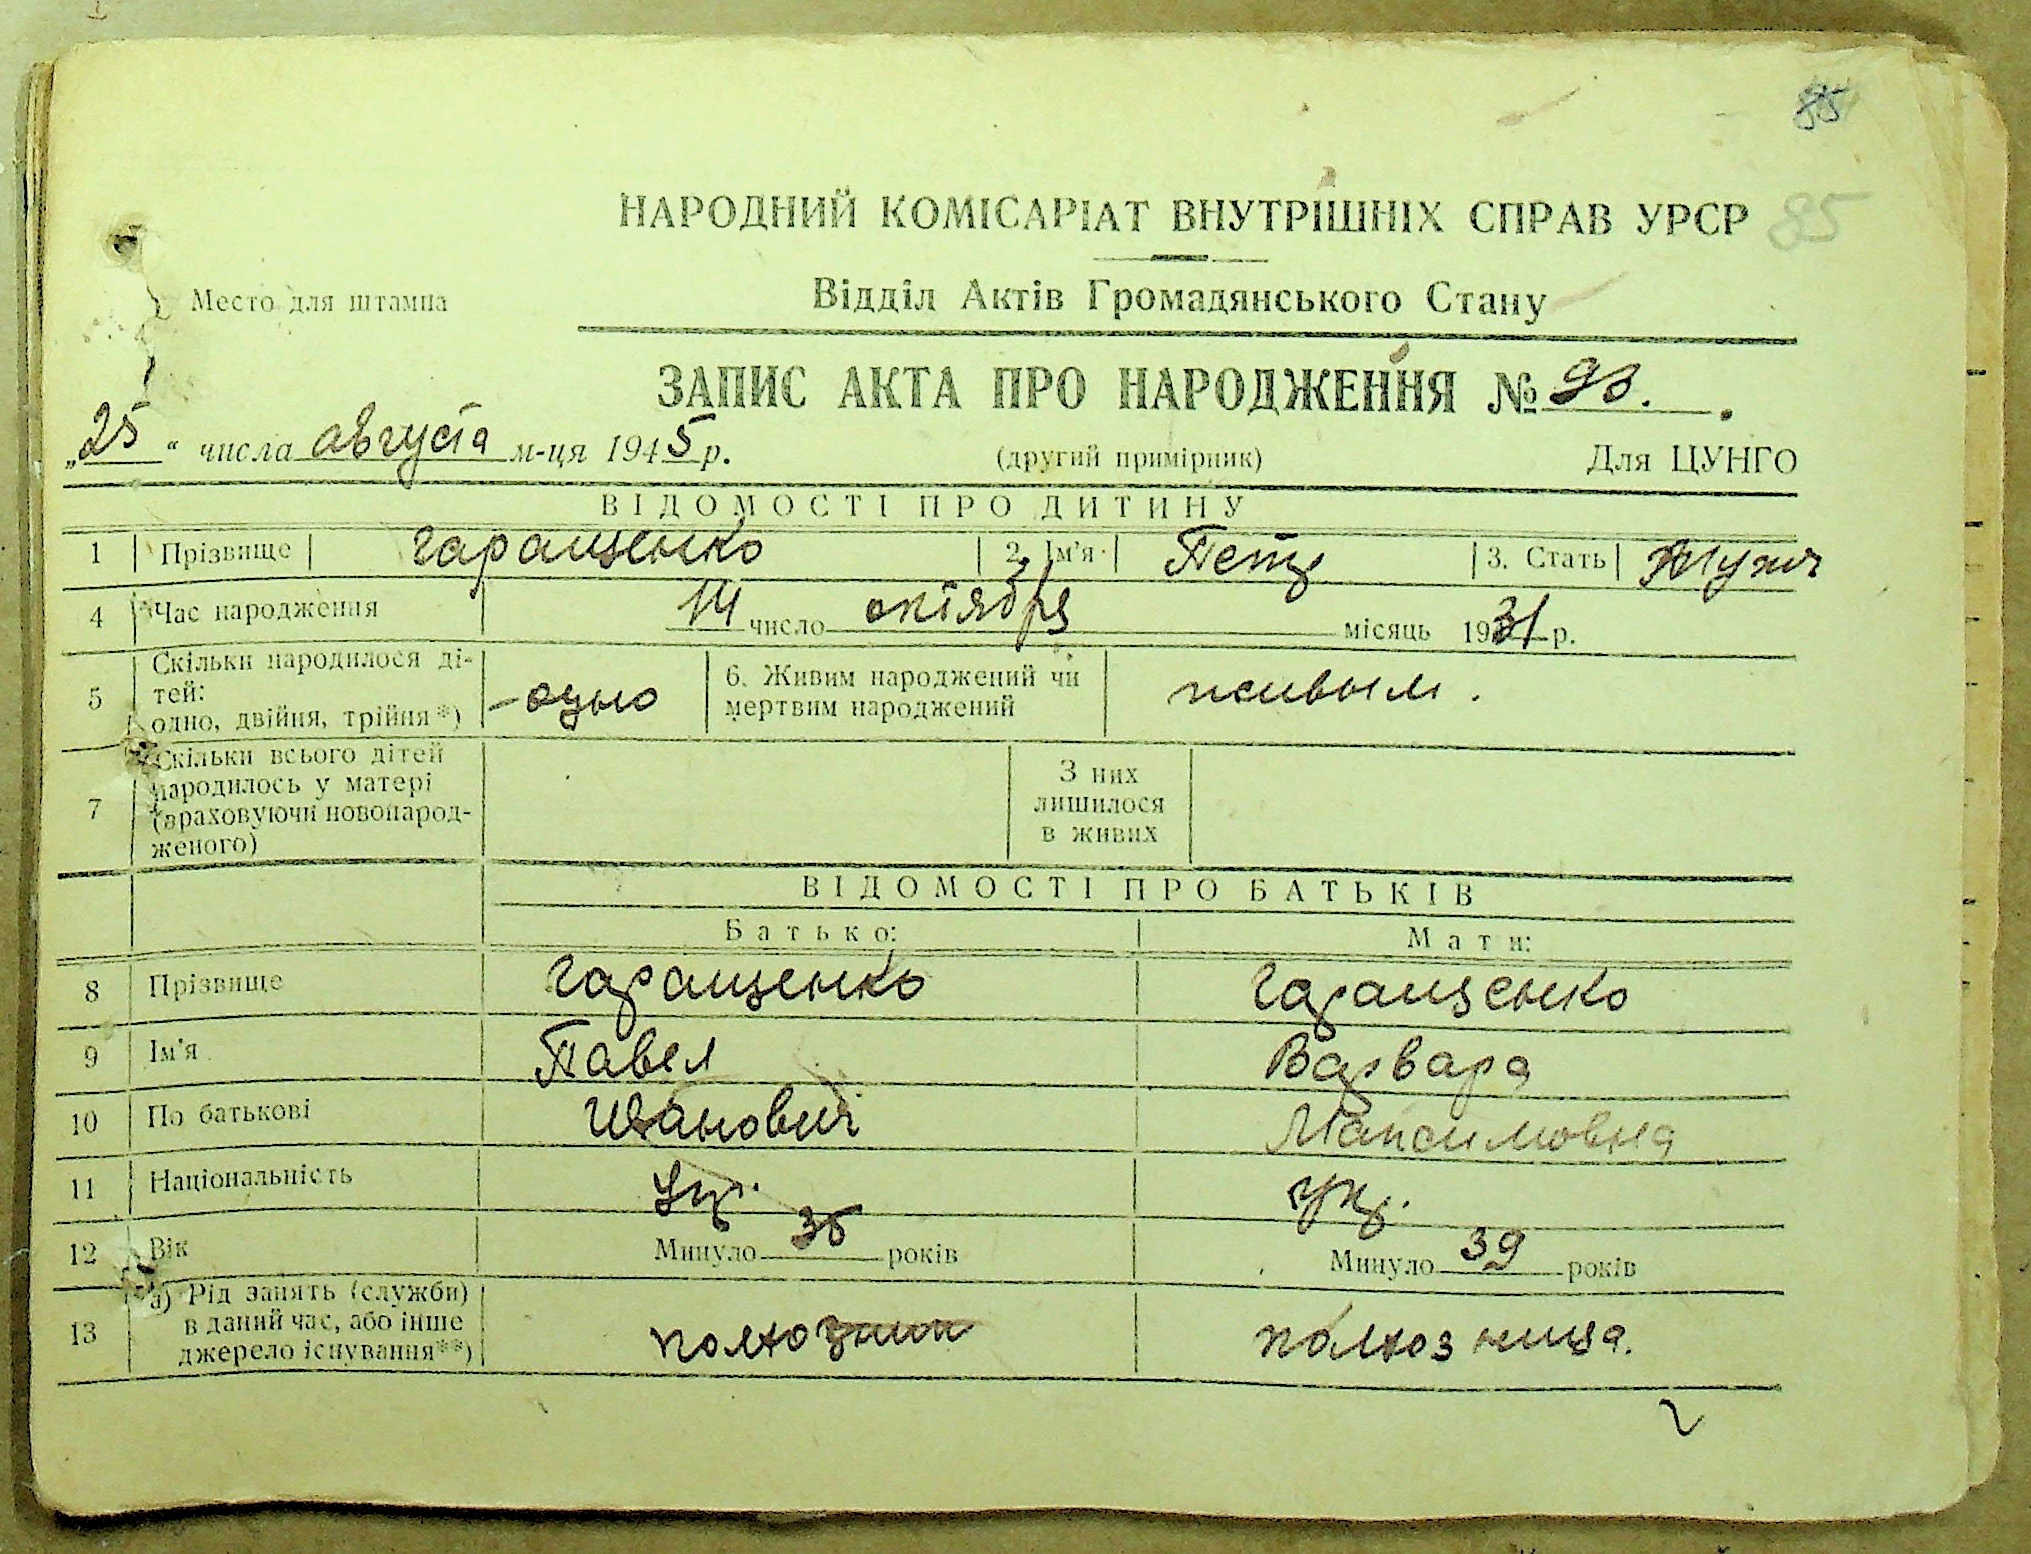 85
НАРОДНИЙ КОМІСАРІАТ ВНУТРІШНІХ СПРАВ УРСР 85
Место для штампа
Відділ Актів Громадянського Стану
ЗАПИС АКТА ПРО НАРОДЖЕННЯ № 93.
„25“ числа августа м-ця 1945 р. (другий примірник) Для ЦУНГО
ВІДОМОСТІ ПРО ДИТИНУ
1 Прізвище Гаращенко 2. Ім'я Петр 3. Стать Мужч
4 Час народження 14 число октября місяць 1931 р.
5 Скільки народилося ді-
тей:
одно, двійня, трійня*) - одно 6. Живим народжений чи
мертвим народжений живым.
7 Скільки всього дітей
народилось у матері
(враховуючи новонарод-
женого)
З них
лишилося
в живих
ВІДОМОСТІ ПРО БАТЬКІВ
Батько: Мати:
8 Прізвище Гаращенко Гаращенко
9 Ім'я Павел Варвара
10 По батькові Иванович Максимовна
11 Національність Укр. укр.
12 Вік Минуло 36 років Минуло 39 років
13 а) Рід занять (служби)
в даний час, або інше
джерело існування**) колхозник колхозница.